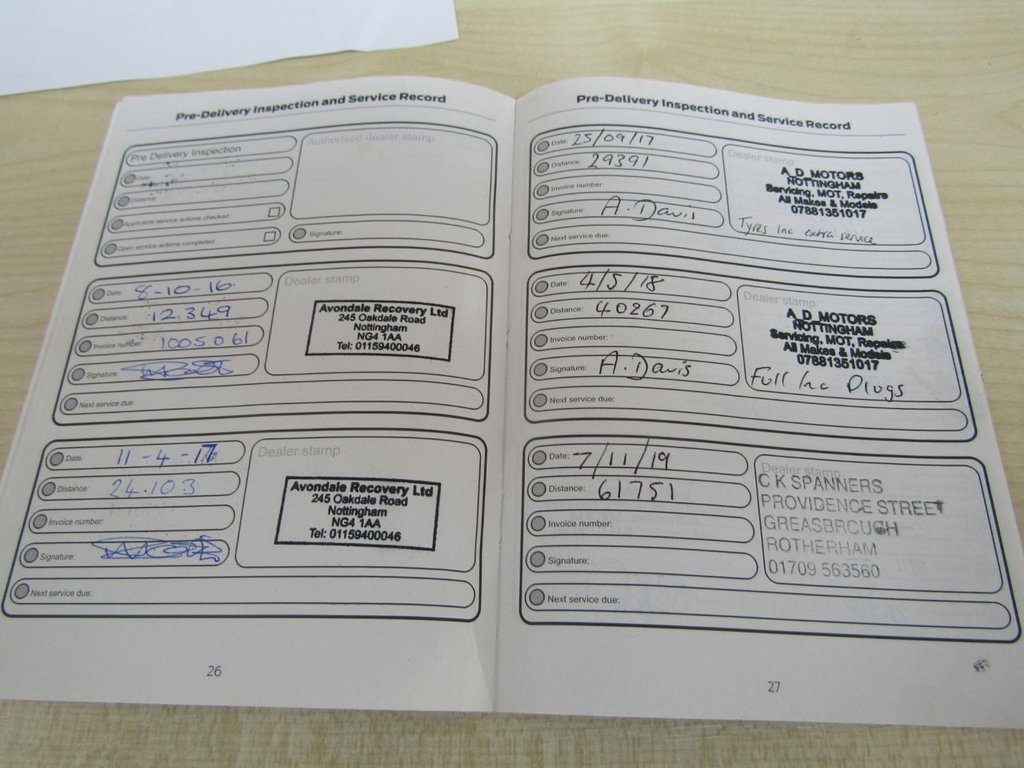 Pre-Delivery Inspection and Service Record
Pre Delivery Inspection
Date:
Distance:
Applicable service actions checked:
Open service actions completed:
Authorised dealer stamp
Signature:
Date: 8-10-16
Distance: 12.349
Invoice number: 1005061
Signature:
Next service due:
Dealer stamp
Avondale Recovery Ltd
245 Oakdale Road
Nottingham
NG4 1AA
Tel: 01159400046
Date: 11-4-17
Distance: 24.103
Invoice number:
Signature:
Next service due:
Dealer stamp
Avondale Recovery Ltd
245 Oakdale Road
Nottingham
NG4 1AA
Tel: 01159400046
26
Pre-Delivery Inspection and Service Record
Date: 25/09/17
Distance: 29391
Invoice number:
Signature: A. Davis
Next service due:
Dealer stamp
A D MOTORS
NOTTINGHAM
Servicing, MOT, Repairs
All Makes & Models
07881351017
Tyres Inc extra service
Date: 4/5/18
Distance: 40267
Invoice number:
Signature: A. Davis
Next service due:
Dealer stamp
A D MOTORS
NOTTINGHAM
Servicing, MOT, Repairs
All Makes & Models
07881351017
Full Inc Plugs
Date: 7/11/19
Distance: 61751
Invoice number:
Signature:
Next service due:
Dealer stamp
C K SPANNERS
PROVIDENCE STREET
GREASBROUGH
ROTHERHAM
01709 563560
27